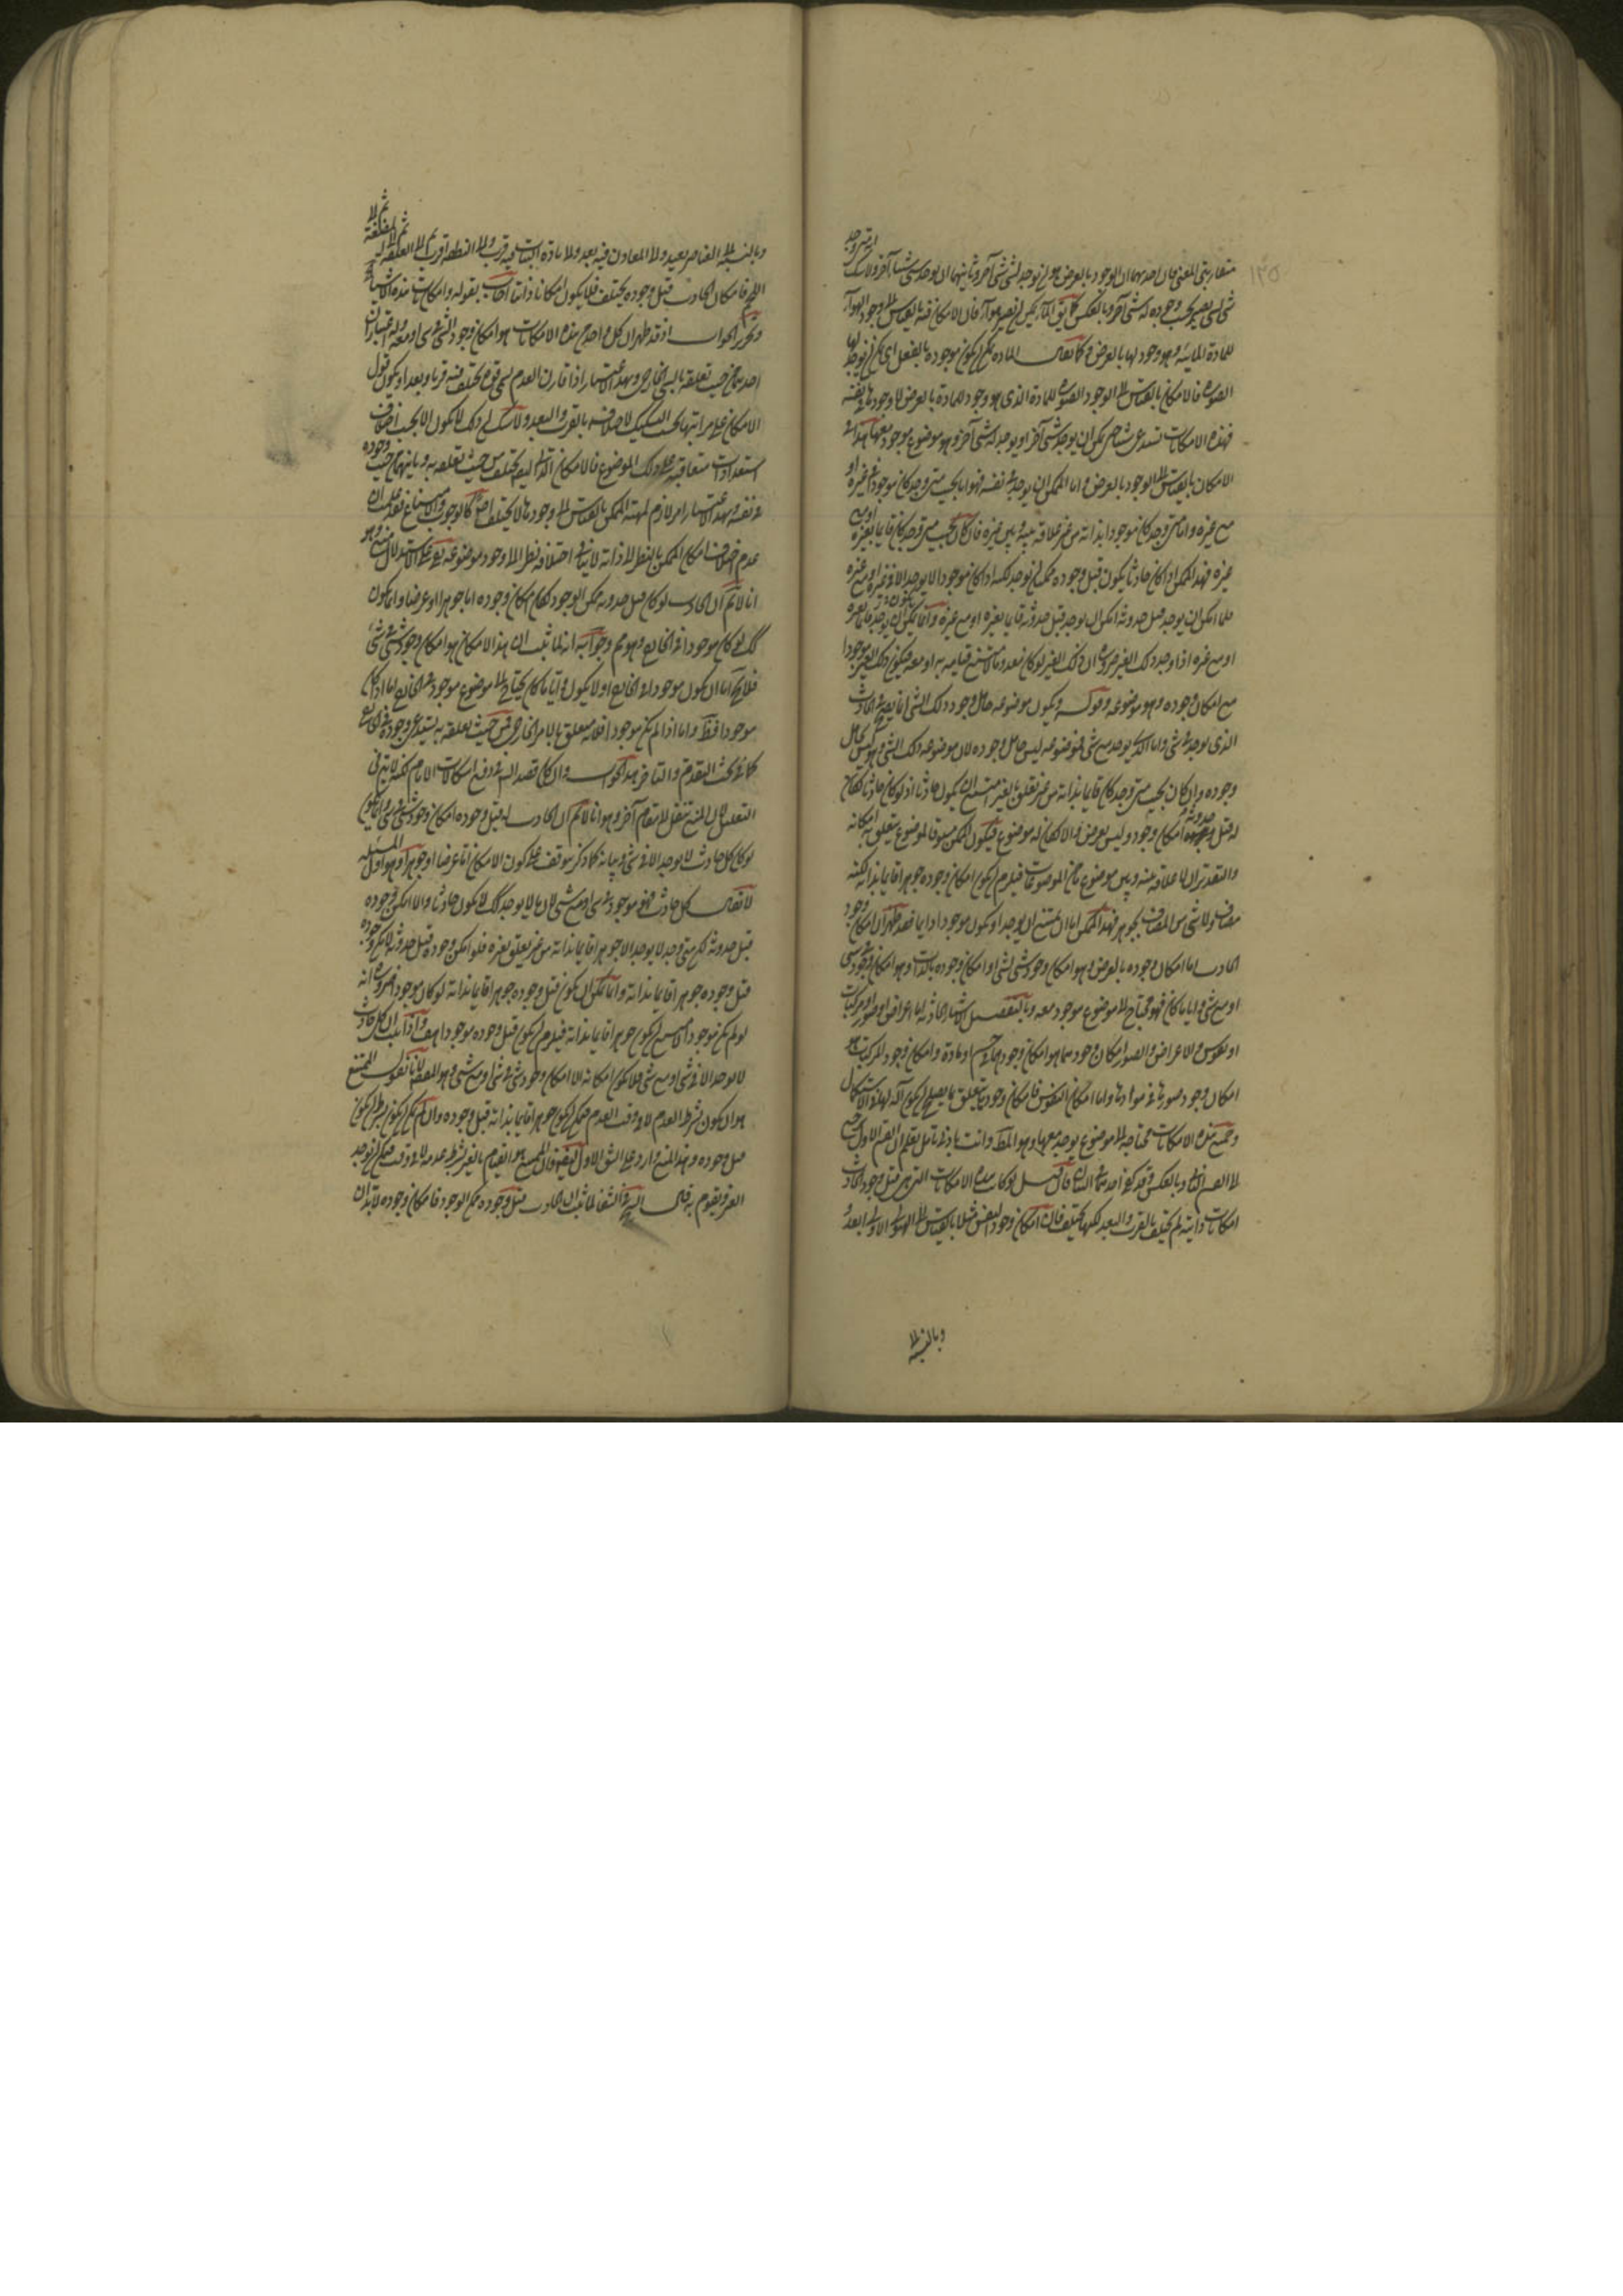 متقاربتي المعنى فان احدهما ان الوجود بالعرض هو ان يوجد لشيء شيء آخر وثانيهما ان يوجد شيء شيئا آخر ولا شك
شيء لشيء يصير بحسب وجوده له شيء آخر وبالعكس كما يق الماء يمكن ان يصير هواء فان الامكان فيه بالقياس الى وجود الهواء
للمادة المائية وهو وجود لها بالعرض وكما يقال المادة يمكن ان يكون موجودة بالفعل اي يمكن ان يوجد لها
الصورة فالامكان بالقياس الى الوجود الصورة للمادة الذي هو وجود للمادة بالعرض لا وجودها في نفسه
فهذه الامكانات تستدعي شيئا حتى يمكن ان يوجد شيئا آخر او يوجد له شيء آخر وهو موضوع موجود معها هذا في
الامكان بالقياس الى الوجود بالعرض واما الممكن ان يوجد في نفسه فهو اما بحيث متى وجد كان موجودا في غيره او
مع غيره واما متى وجد كان موجودا بذاته من غير علاقة بينه وبين غيره فان كان بحيث متى وجد كان قائما بغيره او مع
غيره فهذا الممكن اذا كان حادثا يكون قبل وجوده ممكن ان يوجد لكنه اذا كان موجودا لا يوجد الا في غيره او مع غيره
فلما امكن ان يوجد قبل حدوثه امكن ان يوجد قبل حدوثه قائما بغيره او مع غيره وانما يمكن ان يوجد قائما بغيره
او مع غيره اذا وجد ذلك الغير ضرورة ان ذلك الغير لو كان معدوما لامتنع قيامه به او معه فيكون ذلك الغير موجودا
مع امكان وجوده وهو موضوعه وقوله ويكون موضوعه حامل وجود ذلك الشيء انما يصح في الحادث
الذي يوجد في شيء واما الذي يوجد مع شيء فموضوعه ليس حامل وجوده لان موضوعه ذلك الشيء وهو ليس بحامل
وجوده وان كان بحيث متى وجد كان قائما بذاته من غير تعلق بالغير امتنع ان يكون حادثا اذ لو كان حادثا لكان
له قبل حدوثه امكان وجود وليس بعرض والا لكان له موضوع فيكون الممكن مسبوقا لموضوع يتعلق به امكانه
والتقدير ان لا علاقة بينه وبين موضوع ما من الموضوعات فيلزم ان يكون امكان وجوده جوهرا قائما بذاته لكنه
مضاف ولا شيء من المضاف بجوهر فهذا الممكن اما ان يمتنع ان يوجد او يكون موجودا دائما فقد ظهر ان امكان وجود
الحادث اما امكان وجوده بالعرض وهو امكان وجود شيء لشيء او امكان وجوده بالذات وهو امكان وجود في شيء
او مع شيء وايا ما كان فهو محتاج الى موضوع موجود معه وبالتفصيل الاشياء الحادثة اما اعراض او صور او مركبات
او نفوس والاعراض والصور امكان وجودهما هو امكان وجودهما في جسم او مادة وامكان وجود المركبات هو
امكان وجود صورها في موادها واما امكان النفوس فامكان وجودها يتعلق بما يصلح ان يكون آلة لها في الاستكمال
وجميع هذه الامكانات محتاجة الى موضوع يوجد معها وهو المط وانت بادنى تأمل تعلم ان القسم الاول راجع
الى القسم الثاني وبالعكس وقد يكون احدهما الثاني فان قيل لو كانت هذه الامكانات التي هي قبل وجود الحادث
امكانات ذاتية لم تختلف بالقرب والبعد لكنها تختلف فان امكان وجود النفس مثلا بالقياس الى الهيولى الاولى ابعد و
وبالنسبة الى
وبالنسبة الى العناصر بعيد والى المعادن فيه بعد والى مادة النبات فيه قرب والى النطفة اقرب ثم الى العلقة ثم الى المضغة ثم الى
اللحم فامكان الحادث قبل وجوده يختلف فلا يكون امكانا ذاتيا اجاب بقوله وامكانات هذه الاشياء
وتحرير الجواب انه قد ظهر ان كل واحد من هذه الامكانات هو امكان وجود الشيء في شيء او معه وله اعتباران
احدهما من حيث تعلقه بالشيء الخارجي وبهذا الاعتبار اذا قارن العدم سمي قوة يختلف فيه قربا وبعدا ويكون قول
الامكان على مراتبها بحسب التشكيك لاختلافه بالقرب والبعد ولا شك ان ذلك لا يكون الا بحسب اختلاف
استعدادات متعاقبة على ذلك الموضوع فالامكان الذاتي ليس يختلف من حيث تعلقه به وثانيهما من حيث وجوده
في نفسه وبهذا الاعتبار امر لازم لمهية الممكن بالقياس الى وجودها لا يختلف اصلا كالوجوب والامتناع فعلى ان
عدم اختلاف امكان الممكن بالنظر الى ذاته لا ينافي اختلافه نظرا الى وجود موضوعه بقي على الاستدلال منع وهو
انا لا نم ان الحادث لو كان قبل حدوثه ممكن الوجود لكان امكان وجوده اما جوهرا او عرضا وانما يكون
كك لو كان موجودا في الخارج وهو مم وجوابه انه لما ثبت ان هذا الامكان هو امكان وجود شيء في شيء
فلا يخ اما ان يكون موجودا في الخارج او لا يكون وايا ما كان يحتاج الى موضوع موجود في الخارج اما اذا كان
موجودا فظ واما اذا لم يكن موجودا فلانه متعلق بالامر الخارجي فمن حيث تعلقه به يستدعي وجوده في الخارج
كما في بحث التقدم والتأخر هذا الجواب وان كان قصد اليه في دفع اشكالات الامام لكنه لا يتم في
التعليل لان المنع ينتقل الى مقام آخر وهو انا لا نم ان الحادث له قبل وجوده امكان وجود شيء في شيء وانما يكون
لو كان كل حادث لا يوجد الا في شيء وبيانه كما ذكر موقوف على كون الامكان اما عرضا او جوهرا وهو اول المسئلة
لا يقال كل حادث فهو موجود في شيء او مع شيء لان ما لا يوجد كك لا يكون حادثا والا امكن وجوده
قبل حدوثه لكن متى وجد لا يوجد الا جوهرا قائما بذاته من غير تعلق بغيره فلو امكن وجوده قبل حدوثه لامكن وجوده
قبل وجوده جوهرا قائما بذاته وانما يمكن ان يكون قبل وجوده جوهرا قائما بذاته لو كان موجودا ضرورة انه
لو لم يكن موجودا امتنع ان يكون جوهرا قائما بذاته فيلزم ان يكون قبل وجوده موجودا هف واذا ثبت ان كل حادث
لا يوجد الا في شيء او مع شيء فلا يكون امكانه الا امكان وجود شيء في شيء او مع شيء وهو المط لانا نقول الممتنع
هو ان يكون بشرط العدم لا في وقت العدم فيمكن ان يكون جوهرا قائما بذاته قبل وجوده وان لم يمكن ان يكون بشرط ان يكون
قبل وجوده وهذا المنع وارد على الشق الاول ايضا فان الممتنع هو القيام بالغير بشرط عدمه لا في وقت فيمكن ان يوجد
الغير ويقوم به قال الشيخ في الشفا لما ثبت ان الحادث قبل وجوده ممكن الوجود فامكان وجوده لا بد ان